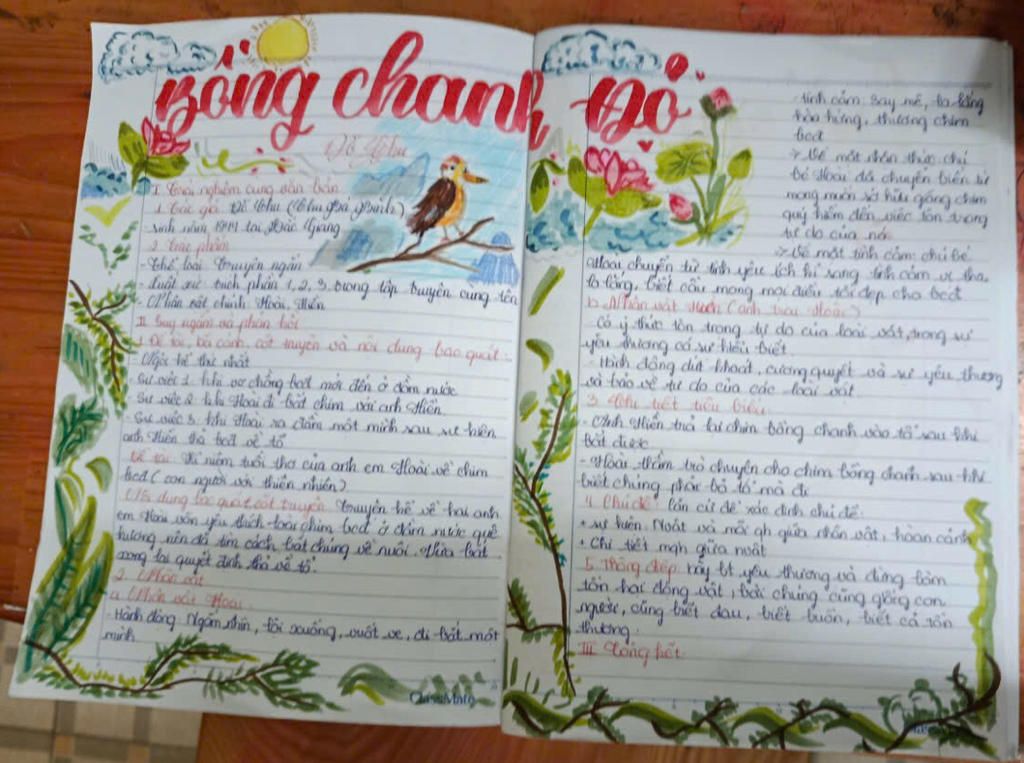 Bồng chanh Đỏ
Đỗ Chu
I. Trải nghiệm cùng văn bản
1. Tác giả Đỗ Chu (Chu Bá Bình)
- sinh năm 1944 tại Bắc Giang
2. Tác phẩm
- Thể loại: Truyện ngắn
- xuất xứ: trích phần 1, 2, 3 trong tập truyện cùng tên
- Nhân vật chính: Hoài, Hiền
II. Suy ngẫm và phản hồi
1. Đề tài, bối cảnh, cốt truyện và nội dung bao quát:
- Ngôi kể thứ nhất
- Sự việc 1: khi vợ chồng bcđ mới đến ở đầm nước
- Sự việc 2: khi Hoài đi bắt chim với anh Hiền
- Sự việc 3: khi Hoài ra đầm một mình sau sự kiện
anh Hiền thả bcđ về tổ
Đề tài: Kỉ niệm tuổi thơ của anh em Hoài về chim
bcđ (con người với thiên nhiên)
Nội dung bao quát cốt truyện: Truyện kể về hai anh
em Hoài vốn yêu thích loài chim bcđ ở đầm nước quê
hương nên đã tìm cách bắt chúng về nuôi. Vừa bắt
xong lại quyết định thả về tổ.
2. Nhân vật
a. Nhân vật Hoài:
- Hành động: Ngắm nhìn, lội xuống, vuốt ve, đi bắt một
mình
- tình cảm: say mê, lo lắng
hào hứng, thương chim
bcđ
> Về mặt nhận thức: chú
bé Hoài đã chuyển biến từ
mong muốn sở hữu giống chim
quý hiếm đến việc tôn trọng
tự do của nó.
> Về mặt tình cảm: chú bé
Hoài chuyển từ tình yêu ích kỉ sang tình cảm vị tha,
lo lắng, biết cầu mong mọi điều tốt đẹp cho bcđ
b. Nhân vật (anh trai Hoài)
- Có ý thức tôn trọng tự do của loài vật, trong sự
yêu thương có sự hiểu biết.
- Hành động dứt khoát, cương quyết và sự yêu thương
và bảo vệ tự do của các loài vật
3. Chi tiết tiêu biểu:
- Anh Hiền trả lại chim bồng chanh vào tổ sau khi
bắt được
- Hoài thầm trò chuyện cho chim bồng chanh sau khi
biết chúng phải bỏ tổ mà đi
4. Chủ đề: căn cứ để xác định chủ đề:
+ sự kiện: Nvật và mối qh giữa nhân vật, hoàn cảnh
+ Chi tiết mqh giữa nvật
5. Thông điệp: hãy bt yêu thương và đừng làm
tổn hại động vật, bởi chúng cũng giống con
người, cũng biết đau, biết buồn, biết cả tổn
thương.
III. Tổng kết
ClassMate